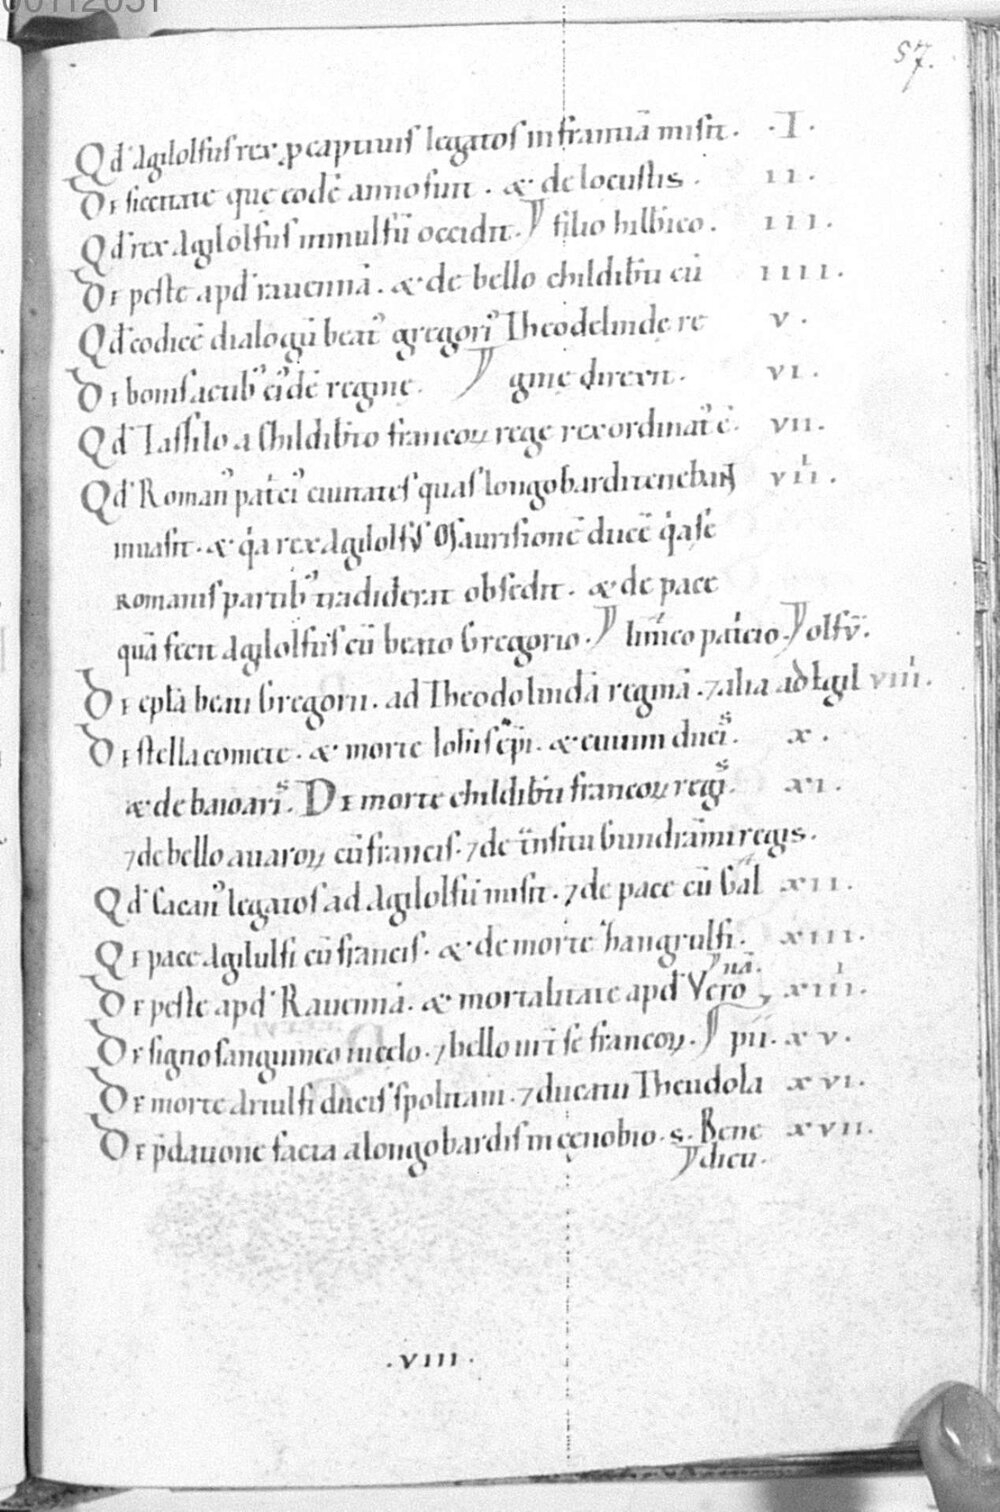 00112051
57.
Qđ Agilolfus rex ꝓ captiuis legatos in franciā misit. .I.
De siccitate quę eodē anno fuit. & de locustis. II.
Qđ rex Agilolfus mimulfū occidit. filio hilbico. III.
De peste apđ rauennā. & de bello childibti cū IIII.
Qđ codicē dialogū beati gregorii Theodelindę re V.
De bonis actibꝰ eiꝰdē reginę. ginę direxit. VI.
Qđ Tassilo a Childibto francoꝝ rege rex ordinatꝰ ē. VII.
Qđ Romanꝰ patciꝰ ciuitates quas longobardi tenebant VII.
inuasit. & qa rex Agilolfus Maurisionē ducē q a se
Romanis partibꝰ tradiderat obsedit. & de pace
quā fecit Agilolfus cū beato Gregorio. patcio. olfū.
De epła beati Gregorii. ad Theodolindā reginā. ⁊ alia ad Agil VIIII.
De stella comete. & morte Iohis epi. & euuini ducis. X.
& de baioaris. De morte childibti francoꝝ regis. XI.
⁊ de bello auaroꝝ cū francis. ⁊ de tnsitu Gundrāmi regis.
Qđ Cacanꝰ legatos ad Agilolfū misit. ⁊ de pace cū Gal XII.
De pace Agilulfi cū francis. & de morte hangrulfi. XIII.
nā.
De peste apđ Rauennā. & mortalitate apđ Vero XIIII.
De signo sanguineo in cęlo. ⁊ bello int se francoꝝ. pii. XV.
De morte Ariulfi ducis spolitani. ⁊ ducatu Theudola XVI.
De p̄dauone facta a longobardis in cęnobio. s. Bene XVII.
dicti.
.VIII.